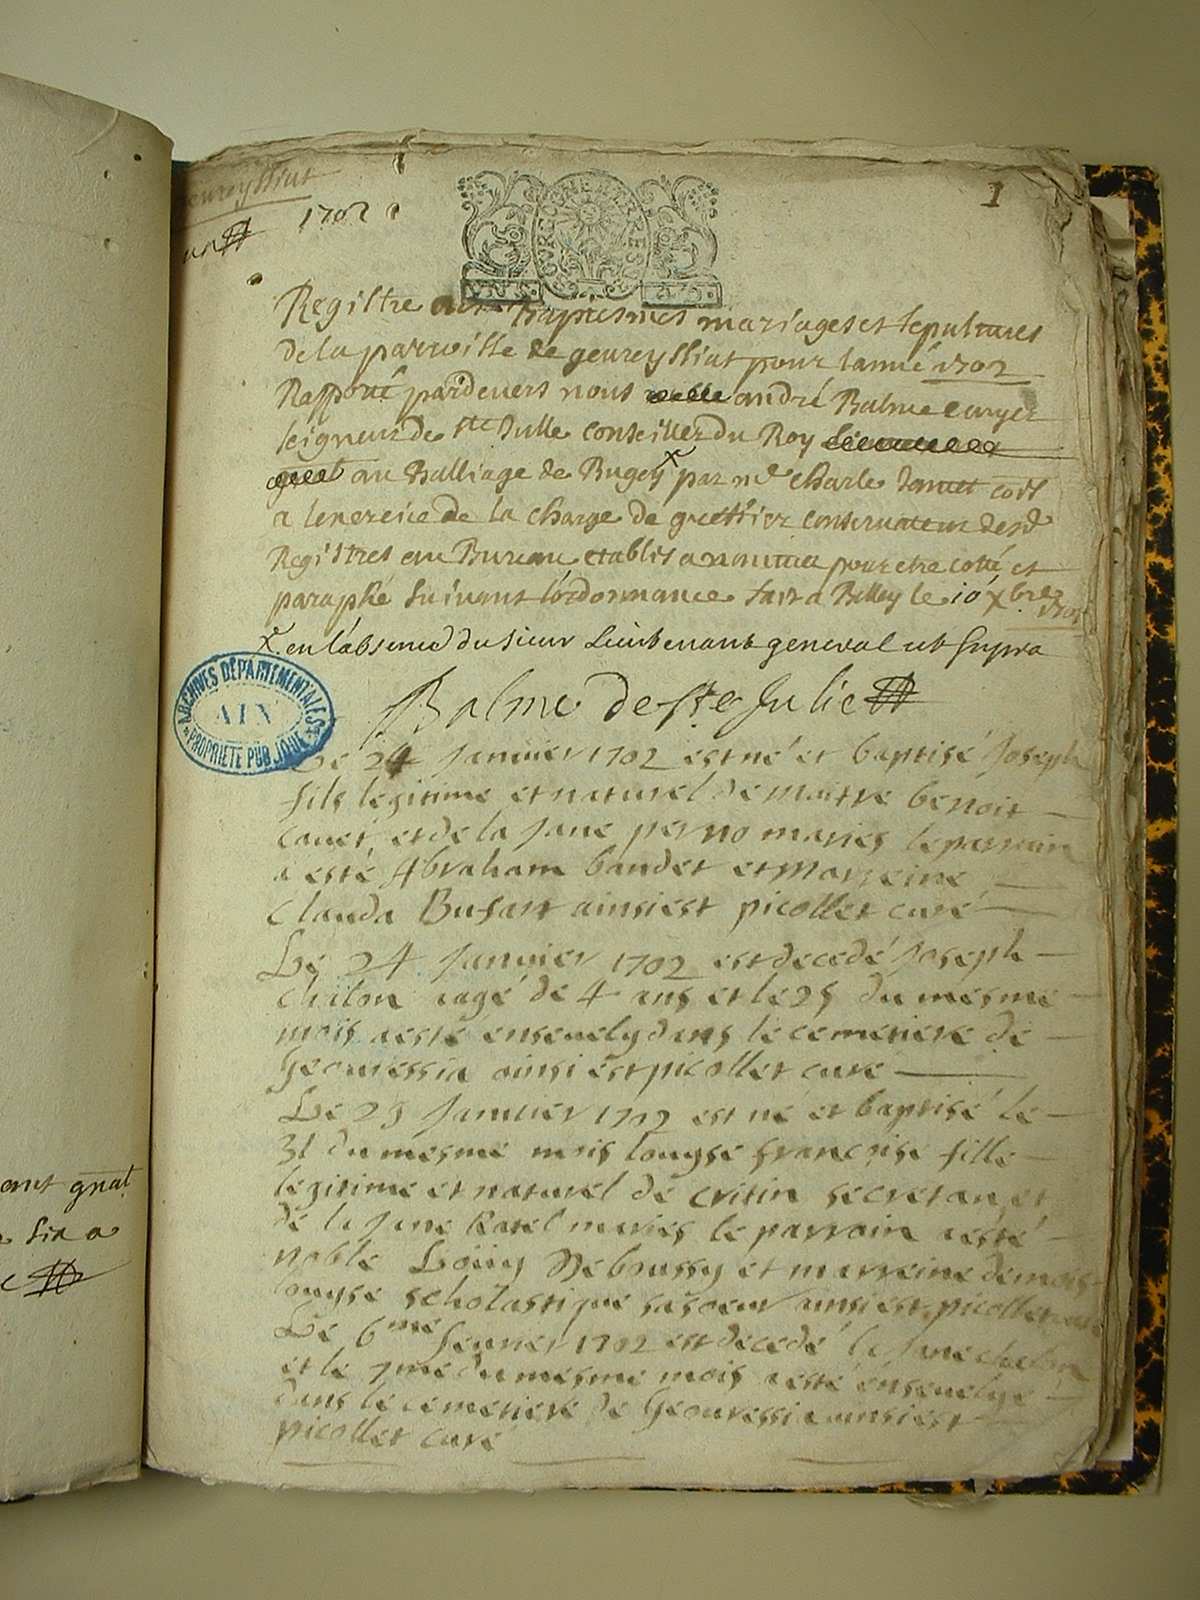 geureyssiat
1702
1
Registre des Baptesmes mariages et sepultures
de la parroisse de geureyssiat pour lanné 1702
Rapporté pardevers nous andré Balme escuyer
seigneur de ste Julle conseiller du Roy
au Balliage de Bugey x par me charle
a lexercice de la charge de greffier conservateur desd
Registres au Bureau establis a pour etre cotté et
paraphé suivant lordonnance fait a Belley le 10 xbre
1701
x en labsence du sieur Lieutenant general ut supra
Balme de ste Julie
ARCHIVES DÉPARTEMENTALES
AIN
PROPRIÉTÉ PUBLIQUE
Le 24 Janvier 1702 est né et baptisé Joseph
fils legitime et naturel de maitre benoit
et de la Jane perno mariés le parrain
a esté Abraham baudet et marreine
Clauda Bufart ainsi est picollet curé
Le 24 Janvier 1702 est decedé Joseph
Chilon aagé de 4 ans et le 25 du mesme
mois a esté ensevely dans le cemetiere de
Geouressia ainsi est picollet curé
Le 25 Janvier 1702 est né et baptisé le
31 du mesme mois louyse francoise fille
legitime et naturel de secretan et
de la Jane Ravel mariés le parrain a esté
noble Louis Deboussy et marreine demois
louyse scholastique sa soeur ainsi est picollet curé
Le 6me fevrier 1702 est decedé la Jane chelon
et le 7me du mesme mois a esté ensevelye
dans le cemetiere de Geouressia ainsi est
picollet curé
gnal